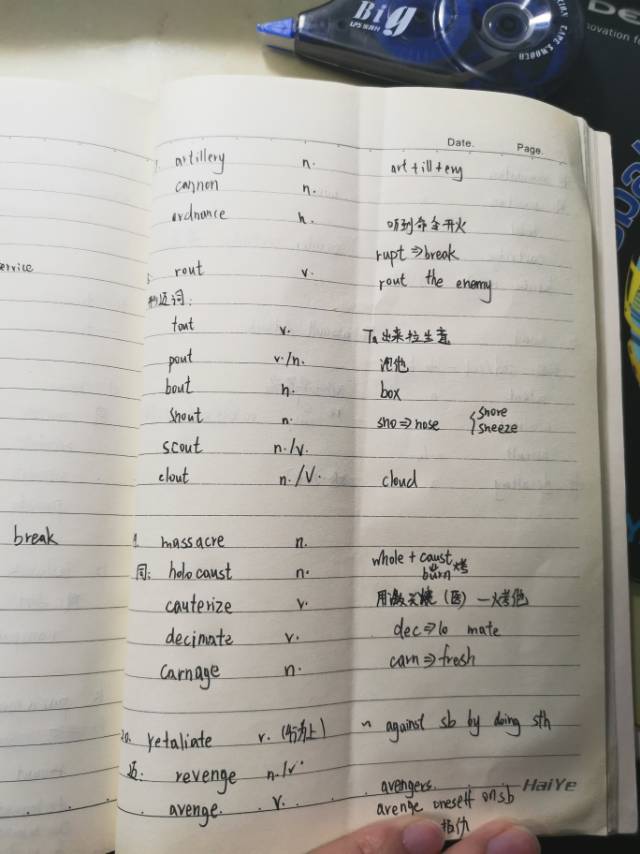 Big
Date. Page.
artillery n. art+ill+ery
cannon n.
ordnance n. 听到命令开火
rupt⇒break
ervice
rout v. rout the enemy
tout v. Ta出来拉生意
pout v./n. 泡他
bout n. box
snout n. sno⇒nose { snore
sneeze
scout n./v.
clout n./v. cloud
break
massacre n.
同: holocaust n. whole + caust
burn 烤
cauterize v. (医)
decimate v. dec⇒10 mate
carnage n. carn⇒fresh
retaliate v. (行为上) ~ against sb by doing sth
revenge n./v.
avengers
HaiYe
avenge v. avenge oneself on sb
报仇